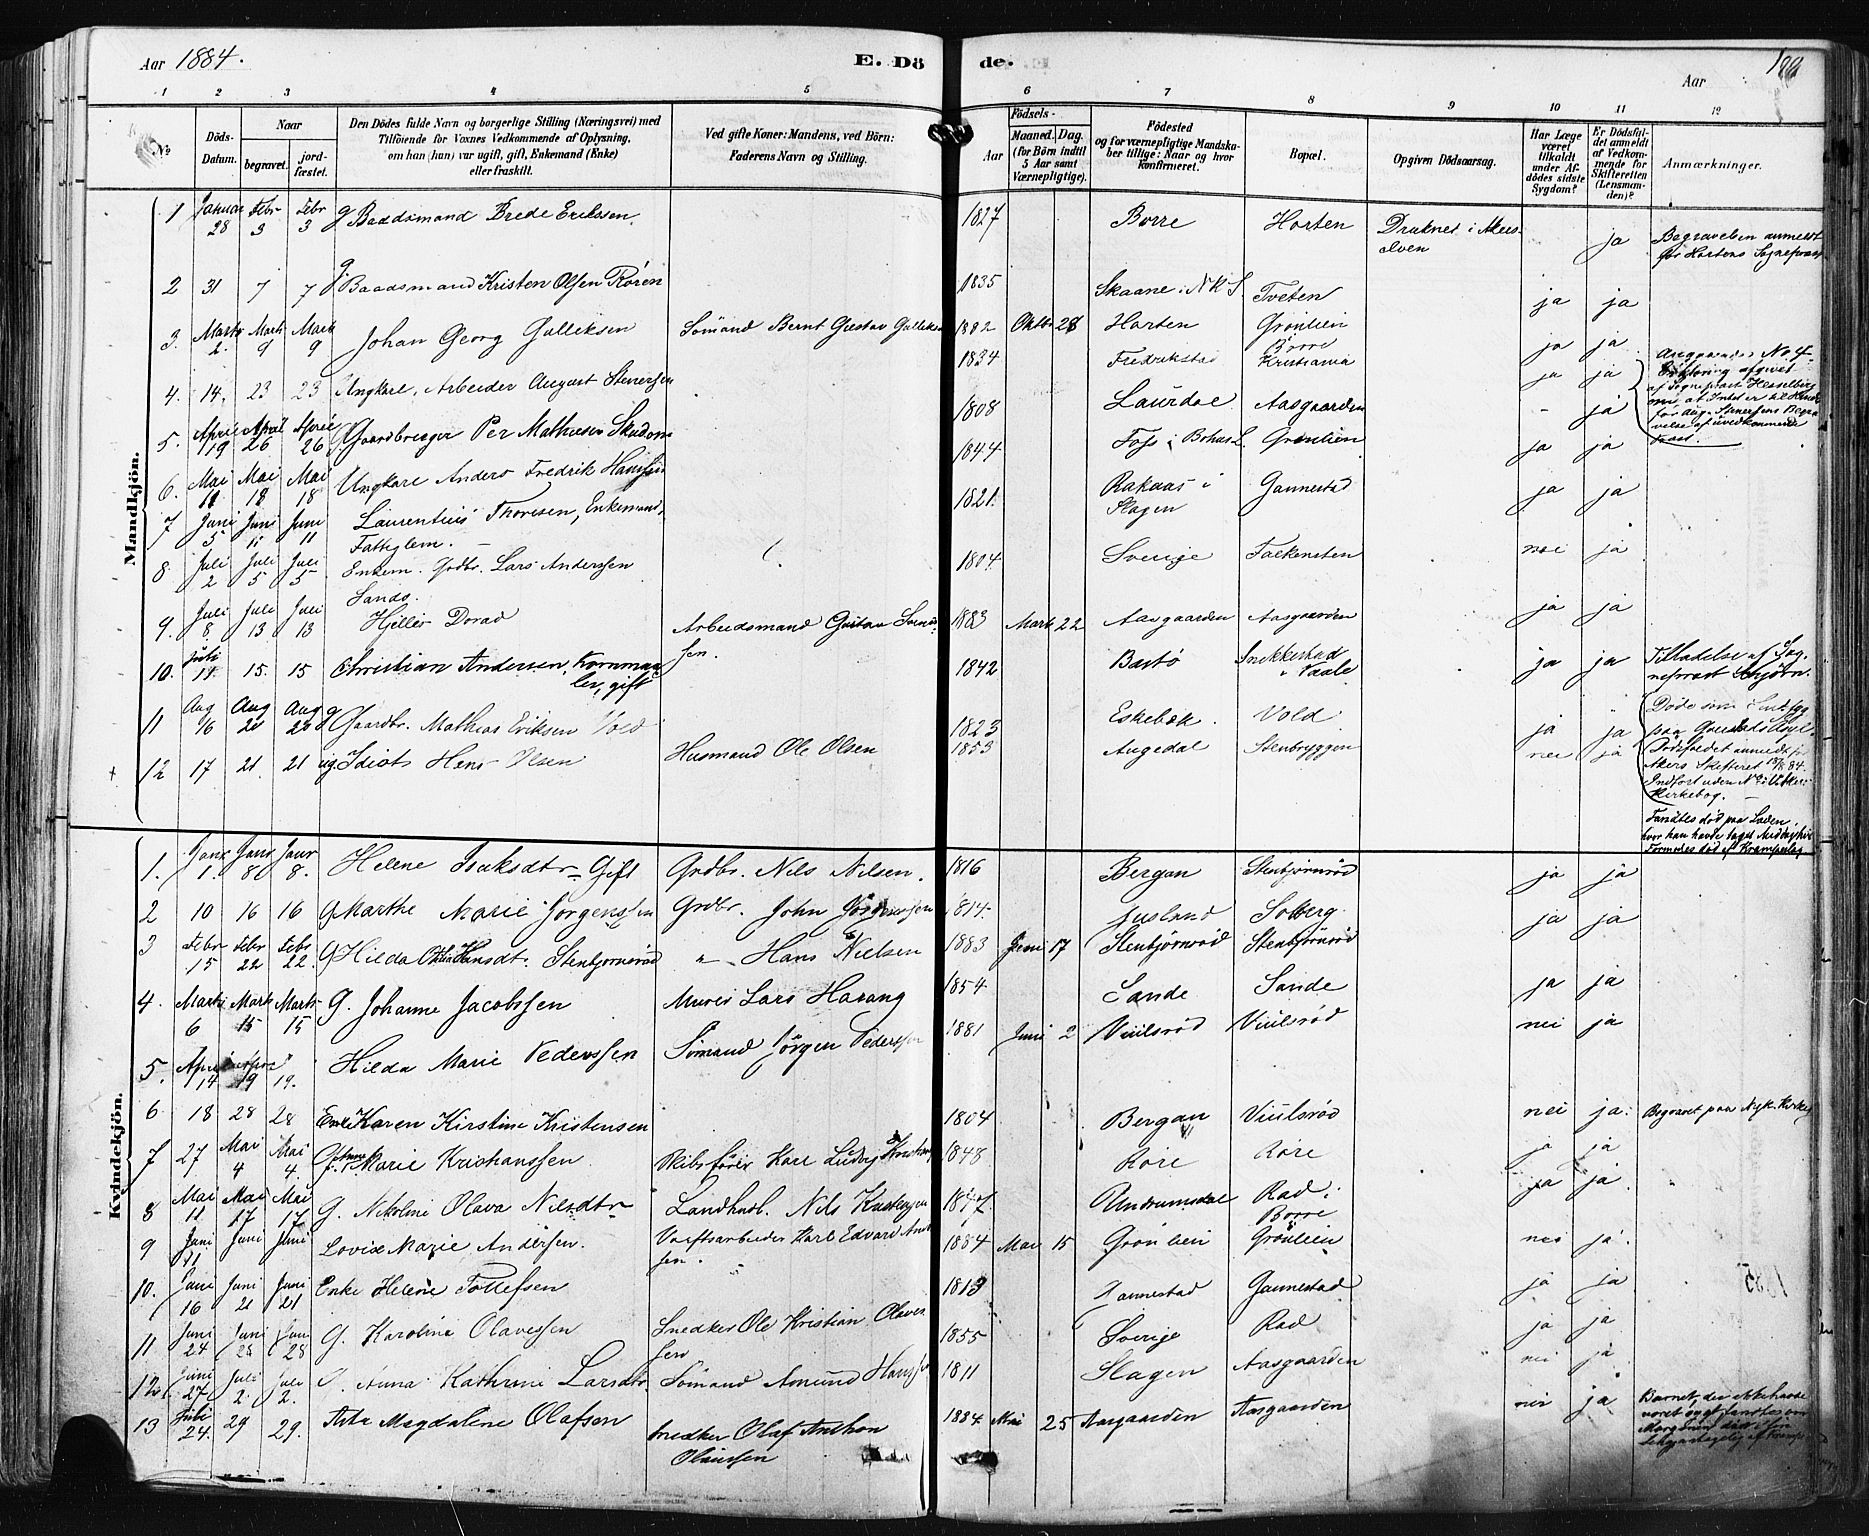 Aar 1884. E. Dö de. Aar
1 2 3 4 5 6 7 8 9 10 11 12
No Döds-Datum. Naar begravet. jordfæstet. Den Dödes fulde Navn og borgerlige Stilling (Næringsvei) med Tilföiende for Voxnes Vedkommende af Oplysning, om han (hun) var ugift, gift, Enkemand (Enke) eller fraskilt. Ved gifte Koner: Mandens, ved Börn: Faderens Navn og Stilling. Födsels- Aar Maaned. Dag. (for Börn indtil 5 Aar samt Værnepligtige). Födested og for værnepligtige Mandskaber tillige: Naar og hvor konfirmeret. Bopæl. Opgiven Dödsaarsag. Har Læge været tilkaldt under Afdödes sidste Sygdom? Er Dödsfaldet anmeldt af Vedkommende for Skifteretten (Lensmanden)? Anmærkninger.
Mandkjön.
1 Januar 28 Febr 3 Febr 3 g Baadsmand Brede Eriksen 1827 Borre Horten Druknet i Akers elven ja Begravelsen anmeldt for Hortens Sognepræst
2 31 7 7 g. Baadsmand Kristen Olsen Rören 1835 Skaane i N K S. Tveten ja ja
3. Marts 2. Marts 9 Marts 9 Johan Georg Gulliksen Sömand Bernt Gustav Gulliksen 1882 Oktbr 28 Horten Grönlien Borre ja ja
4. 14. 23 23 Ungkarl, Arbeider August Stenersen 1834 Fredrikstad Kristiania ja ja Angaaende No 4 Erklæring afgivet af Sognepræst Hesselberg om, at Intet er til Hinder for Aug. Stenersens Begravelse af uvedkommende Præst.
5. April 19 April 26 April 26 Gaardbruger Per Mathiesen Skudom 1808 Laurdal Aasgaarden - ja
6. Mai 11 Mai 18 Mai 18 Ungkarl Anders Fredrik Hanssen 1844 Foss i Bohus L. Grönlien ja ja
7 Juni 5 Juni 11 Juni 11 Laurentius Thoresen, Enkemand, Fattiglem. 1821. Rakaas i Slagen Gannestad ja ja
8. Juli 2 Juli 5 Juli 5 Enkem. Grdbr. Lars Anderssen Sands. 1804. Sverige Falkensten nei ja
9. Juli 8 Juli 13 Juli 13 Hjelles Dorad Arbeidsmand Gustav Svensen. 1883 Marts 22 Aasgaarden Aasgaarden ja ja
10. Juli 11 15. 15 Christian Andersen, Kornmaaler, gift 1842 Bastö Snekkestad i Vaale ja ja Tilladelse af Sognepræst Schjörn.
11 Aug 16 Aug 20 Aug 20 g Gaardbr. Mathias Eriksen Vold 1823 Eskebæk. Vold ja ja
12 17 21. 21 ug. Idiot Hans Olsen Husmand Ole Olsen 1853 Augedal Stenbryggen nei ja Döde som Sindssyg paa Gaustads Asyl. Dödsfaldet anmeldt for Akers Skifteret 18/8 84. Indfört uden No i V. Akers Kirkebog. – Fandtes död paa Loden, hvor han havde taget Middagshvil. Formodes död af Krampeslag
Kvindekjön.
1. Janr 1. Janr 8 Janr 8. Helene Isaksdtr. Gift Grdbr. Nils Nilsen. 1816 Bergan Stenbjörnröd ja ja
2 10 16 16 G Marthe Marie Jörgenssen Grdbr. John Jörgenssen 1814. Jusland Solberg ja ja
3 Febr 15 Febr 22 Febr 22. Hilda Othilia Hansdt. Stenbjörnröd " Hans Nielsen 1883 Juni 17 Stenbjörnröd Stenbjörnröd
4. Marts 6 Marts 15 Marts 15 G. Johanne Jacobssen Murer Lars Harang 1854 Sande Sande ja ja
5. April 14 April 19 19. Hilda Marie Pederssen Sömand Jörgen Pederssen 1881 Juni 2 Viulsröd Viulsröd nei ja
6 18 28 28 Enke Karen Kirstine Kristensen 1804 Bergan Viulsröd nei ja. Begravet paa Nyk. Kirkeg
7 27 Mai 4 Mai 4. G. Anne Marie Kristianssen Skibsförer Karl Ludvig Kristians 1848 Röre Röre ja ja
8 Mai 11 Mai 17 Mai 17 G. Nikoline Olava Nilsdtr Landhndl. Nils Kristenssen 1847 Undrumsdal Rad i Borre ja ja.
9 Juni 1 Juni Juni Lovise Marie Andersen. Værftsarbeider Karl Edvard Andersen. 1884 Mai 15 Grönlien Grönlien nei ja.
10. Juni 16 Juni 21 Juni 21 Enke Helene Tollefsen 1813 Gannestad Gannestad ja ja
11 Juni 24 Juni 28 Juni 28 G. Karoline Olavessen Snedker Ole Kristian Olavessen 1855 Sverige Rad ja ja
12 Juni 27 Juli 2. Juli 2. G. Anna Kathrine Larsdtr. Sömand Amund Hanssen 1811 Slagen Aasgaarden nei ja
13 Juli 24. 29 29. Asta Magdalene Olafsen Snedker Olaf Anthon Olaussen 1884 Mai 25 Aasgaarden Aasgaarden nei ja Barnet, der ikke havde været sygt fandtes om Morgenen död i sin Seng